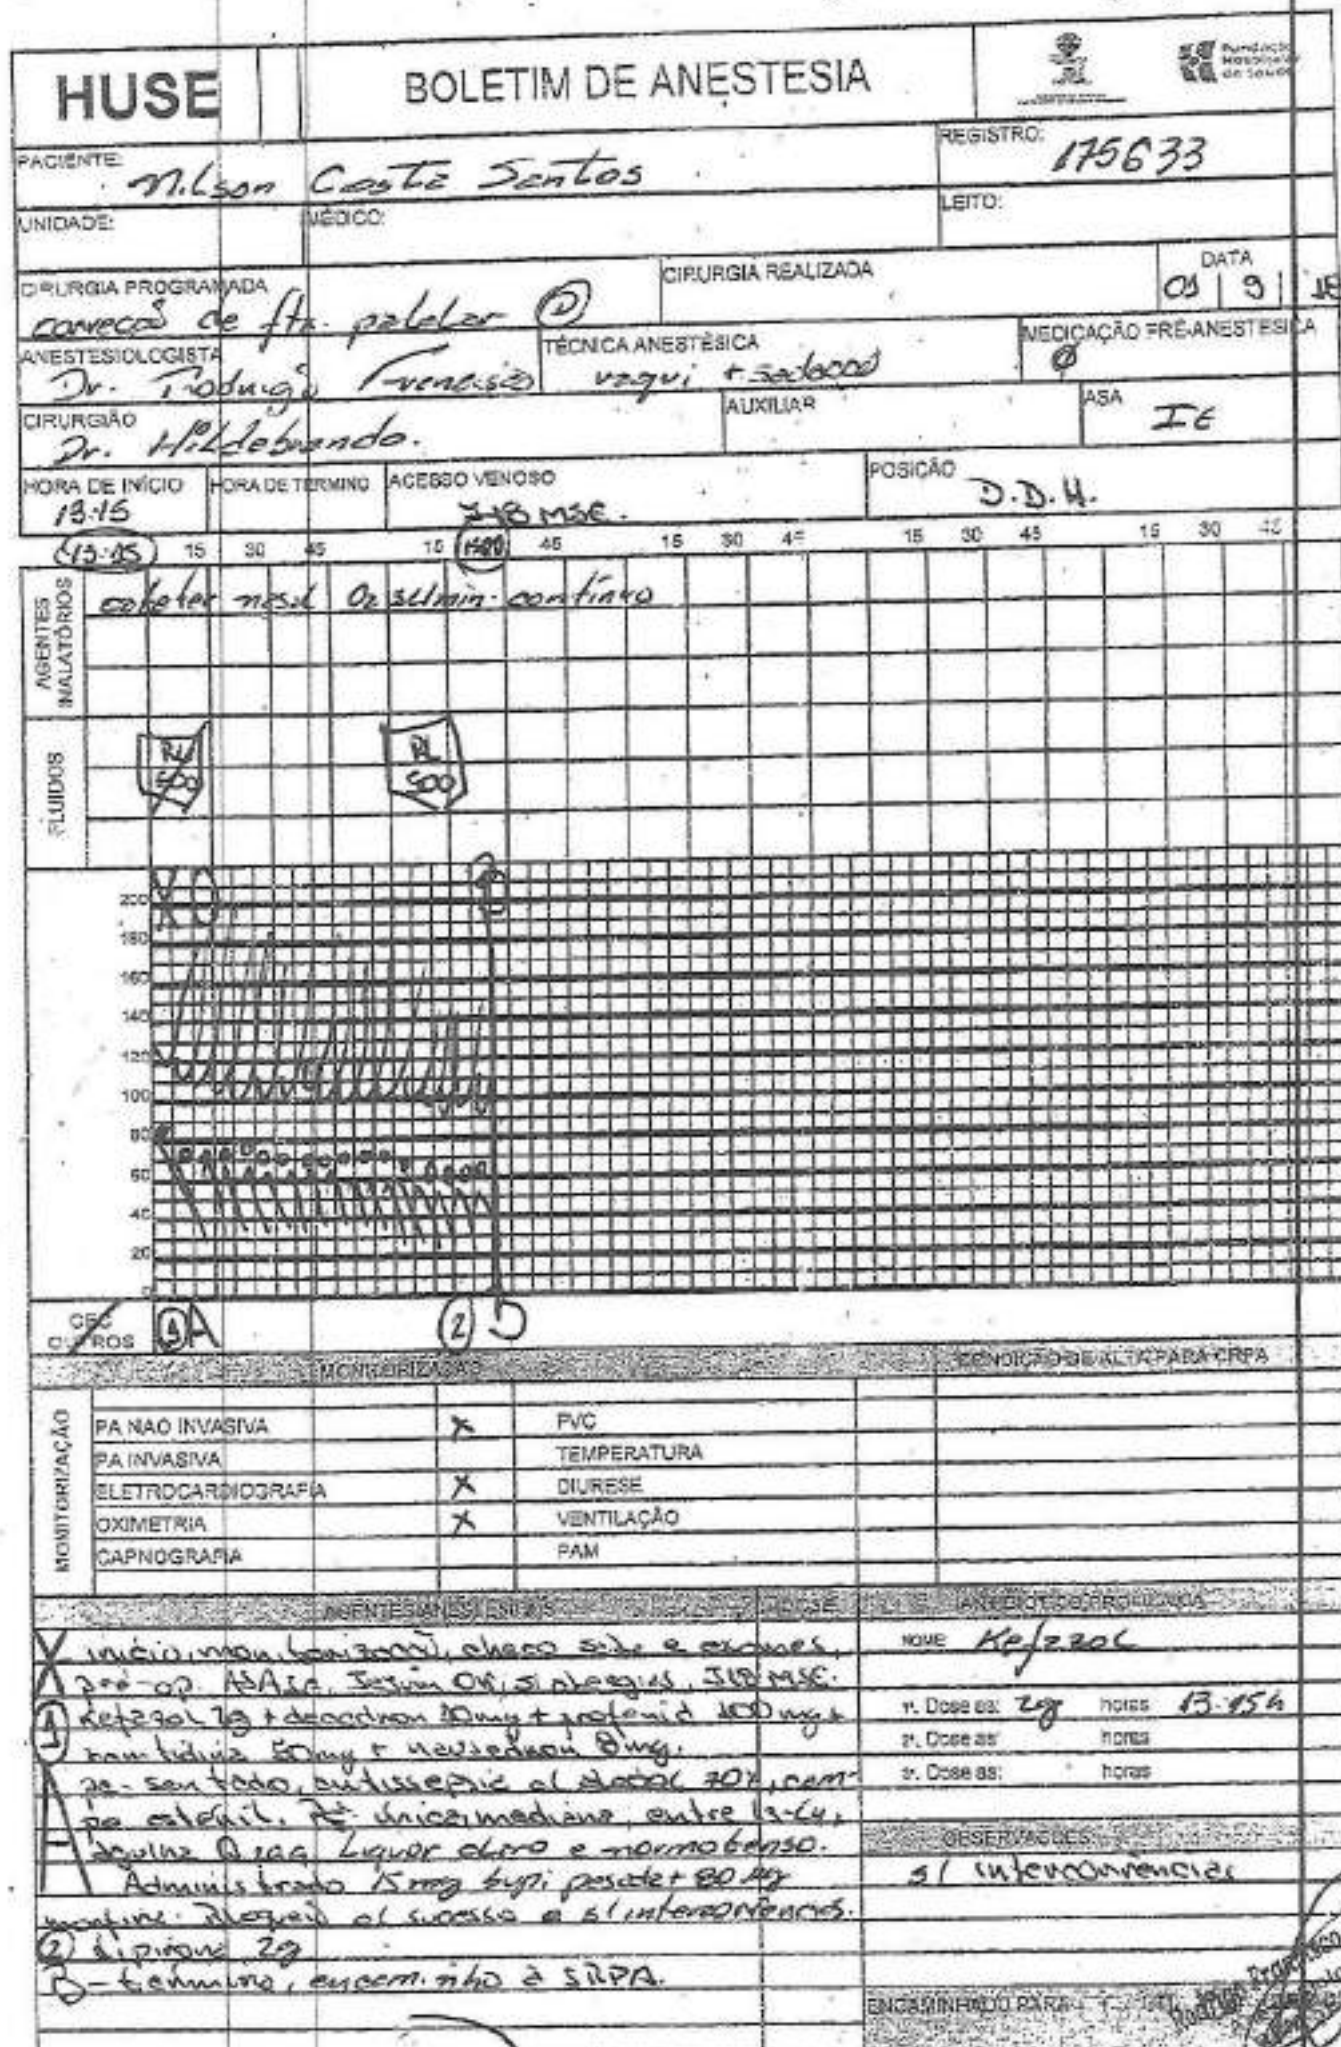 HUSE
BOLETIM DE ANESTESIA
Fundação Hospitalar de Saúde
PACIENTE: Nilson Costa Santos
REGISTRO: 175633
UNIDADE:
MÉDICO:
LEITO:
CIRURGIA PROGRAMADA
CIRURGIA REALIZADA
DATA
correção de ftr. patelar D
01 | 9 | 18
ANESTESIOLOGISTA
TÉCNICA ANESTÉSICA
MEDICAÇÃO PRÉ-ANESTESICA
Dr. Rodrigo
raqui + sedação
Ø
CIRURGIÃO
AUXILIAR
ASA
Dr. Hildebrando.
HORA DE INÍCIO
HORA DE TÉRMINO
ACESSO VENOSO
POSIÇÃO
13:15
J18 MSE.
D.D.H.
13:15 15 30 45 15 45 15 30 45 15 30 45 15 30 45
AGENTES INALATÓRIOS
cateter nasal O2 3L/min. contínuo
FLUIDOS
RL 500
RL 500
X O
200
180
160
140
120
100
80
60
40
20
0
CEC
OUTROS
1 A
2 B
MONITORIZAÇÃO
CONDIÇÃO DE ALTA PARA CRPA
MONITORIZAÇÃO
PA NAO INVASIVA X PVC
PA INVASIVA TEMPERATURA
ELETROCARDIOGRAFIA X DIURESE
OXIMETRIA X VENTILAÇÃO
CAPNOGRAFIA PAM
AGENTES ANESTESICOS
DOSE
ANTIBIOTICO PROFILAXIA
X início, monitorização, checo sala e exames
pré-op. Jejum OK, s/ alergias, J18 MSE.
1 Kefzol 2g + decadron 10mg + profenid 100mg +
ranitidina 50mg + nausedron 8mg.
A pc. sentado, antissepsia c/ alcool 70%, cam-
po estéril. única, mediana, entre L3-L4,
agulha Liquor claro e normotenso.
Administrado 15mg bupi pesada + 80 µg
morfina. Bloqueio c/ sucesso e s/ intercorrências.
2 dipirona 2g
B - término, encaminho à SRPA.
NOME Kefzol
1ª. Dose as: 2g horas 13:15h
2ª. Dose as: horas
3ª. Dose as: horas
OBSERVAÇÕES
s/ intercorrências
ENCAMINHADO PARA